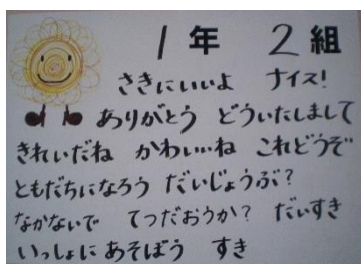 1年 2組
さきにいいよ ナイス!
ありがとう どういたしまして
きれいだね かわいいね これどうぞ
ともだちになろう だいじょうぶ?
なかないで てつだおうか? だいすき
いっしょにあそぼう すき